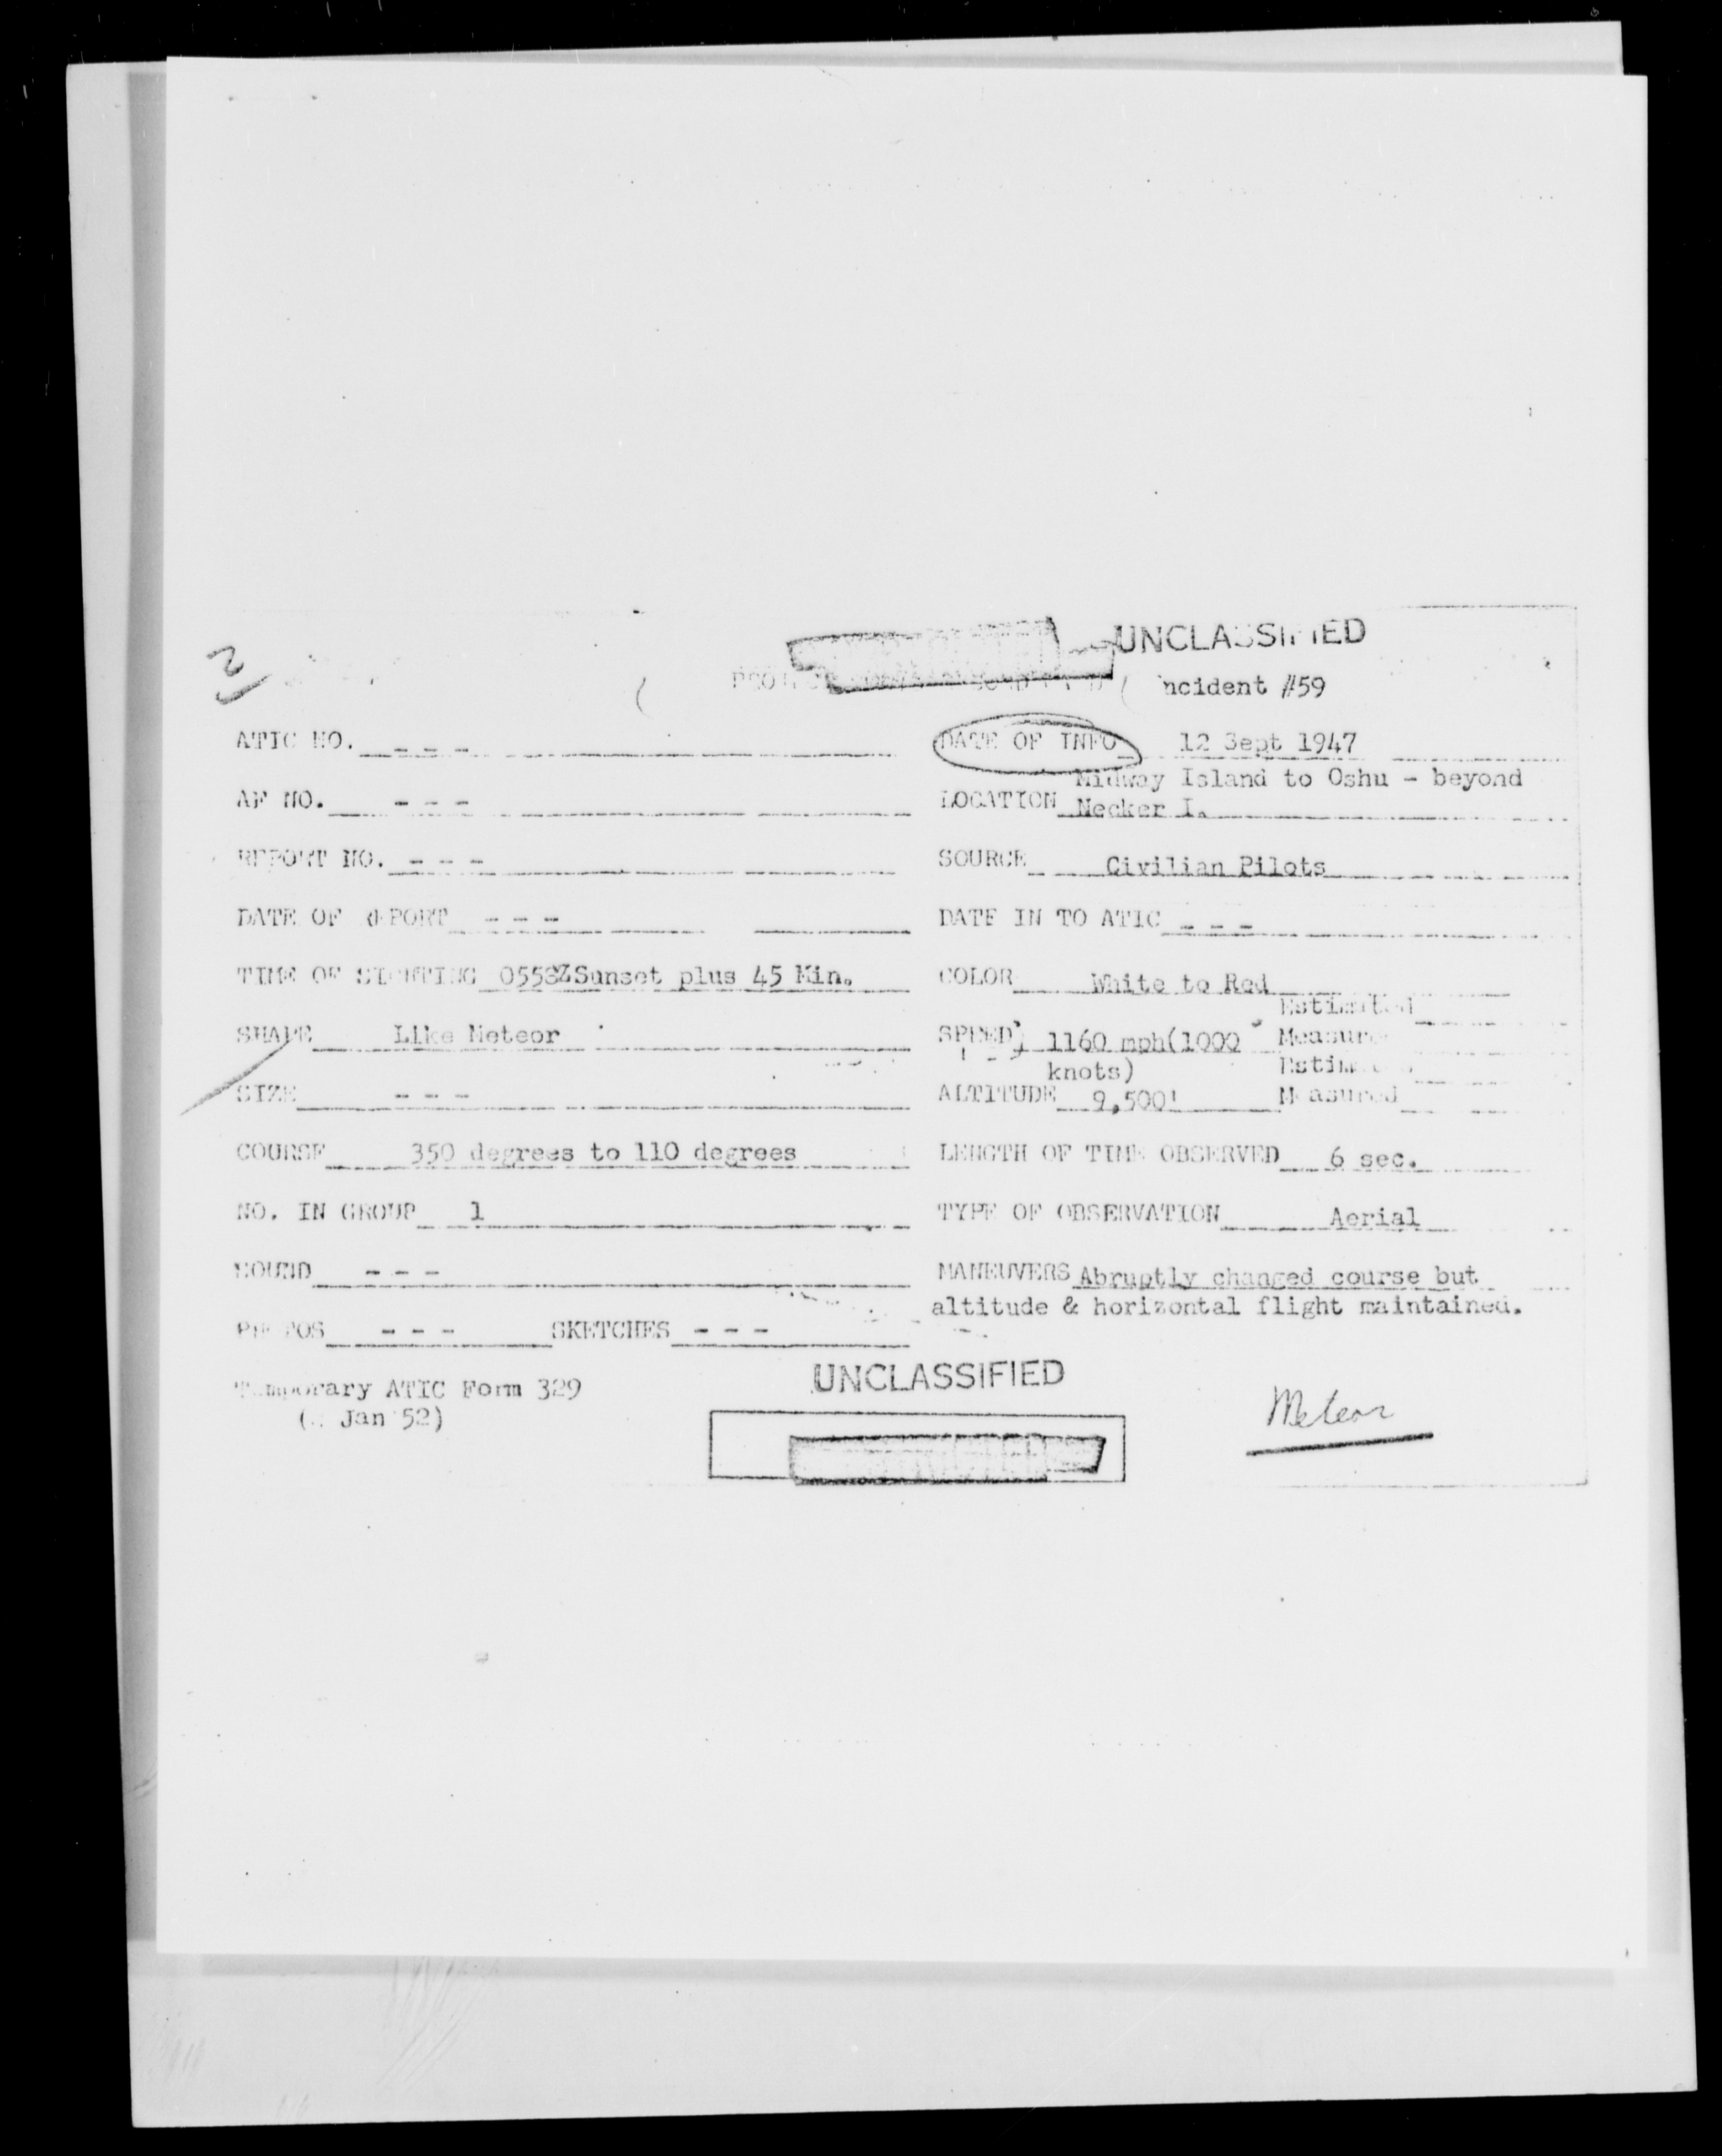 UNCLASSIFIED
Incident #59
ATIC NO. - - - DATE OF INFO 12 Sept 1947
Midway Island to Oshu - beyond
AF NO. - - - LOCATION Necker I.
REPORT NO. - - - SOURCE Civilian Pilots
DATE OF REPORT - - - DATE IN TO ATIC - - -
TIME OF SIGHTING 0558Z Sunset plus 45 Min. COLOR White to Red
Estimated
SHAPE Like Meteor SPEED 1160 mph(1000 Measured
knots) Estimated
SIZE - - - ALTITUDE 9,500' Measured
COURSE 350 degrees to 110 degrees LENGTH OF TIME OBSERVED 6 sec.
NO. IN GROUP 1 TYPE OF OBSERVATION Aerial
SOUND - - - MANEUVERS Abruptly changed course but
altitude & horizontal flight maintained.
PHOTOS - - - SKETCHES - - -
UNCLASSIFIED
Temporary ATIC Form 329
Jan 52)
Meteor